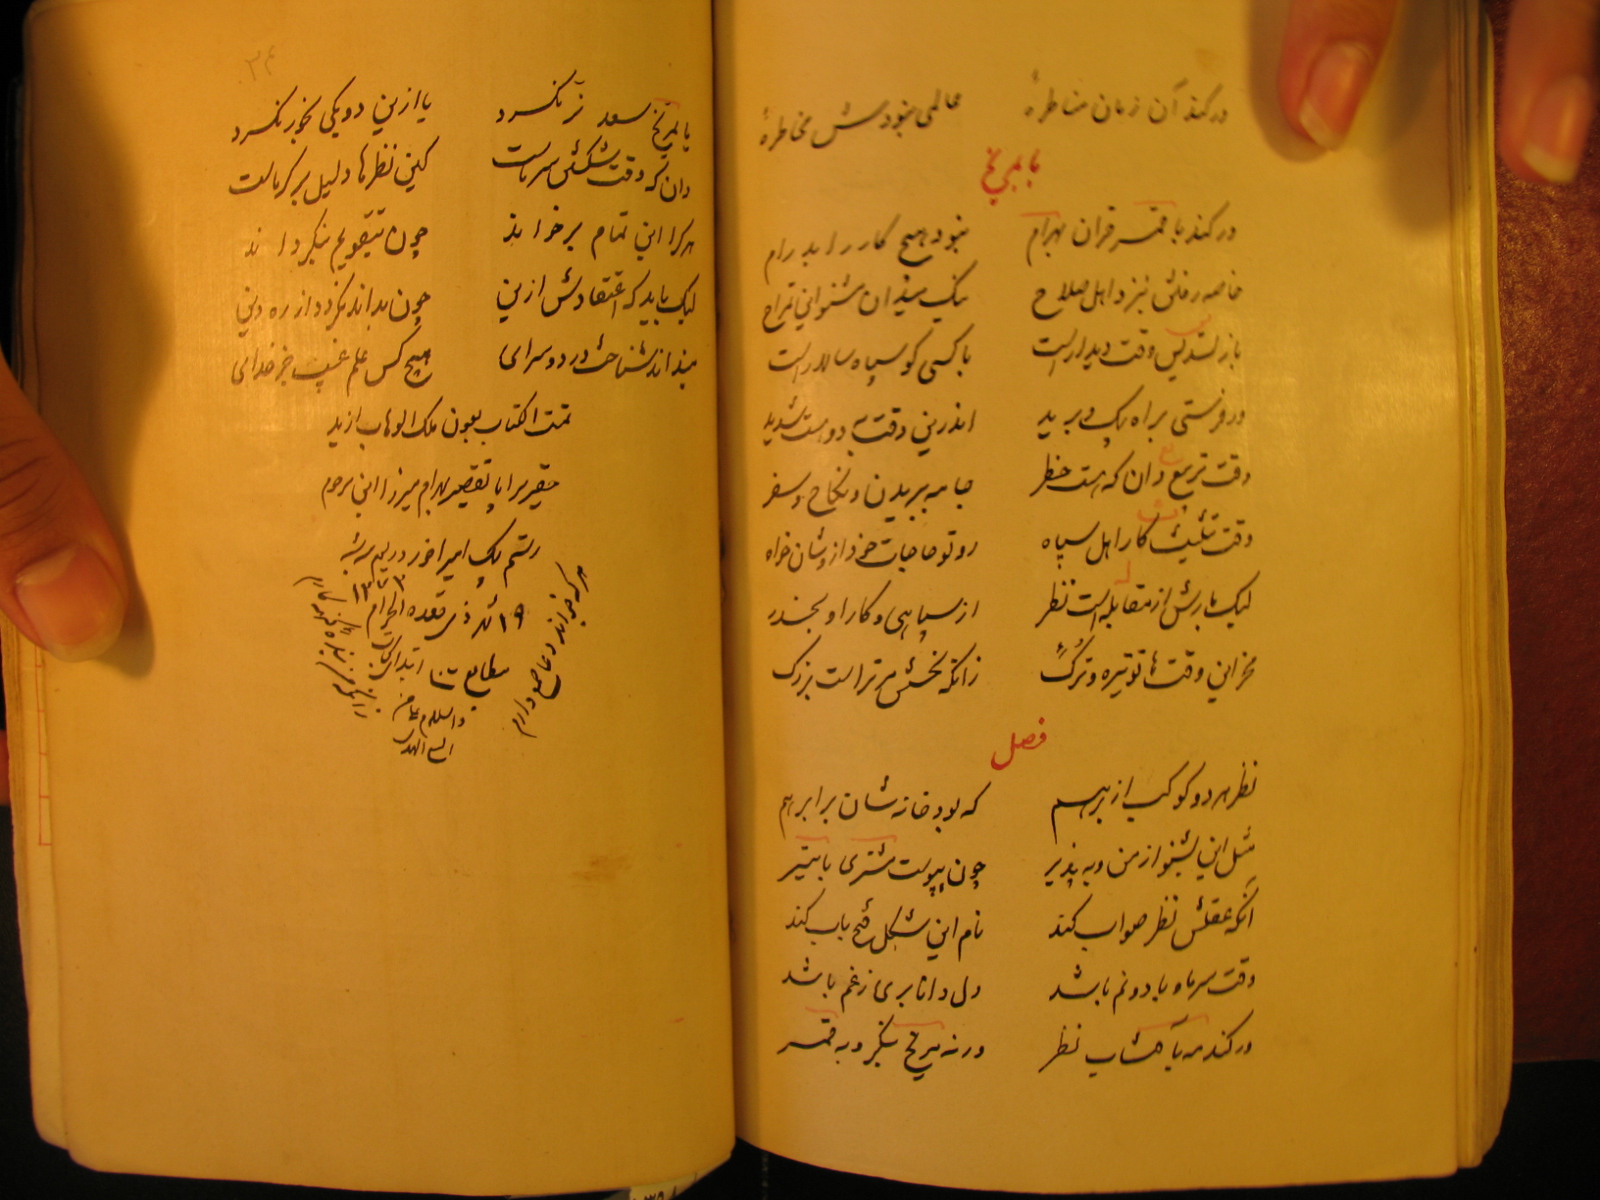 ور کند آن زمان مناظرهٔ عالمی نبودش مخاطرهٔ
با مریخ
ور کند با قمر قران بهرام نبود هیچ کار را بدرام
خاصه رفتن نزد اهل صلاح نیک میدان شنو این
باز تسدیس وقت دیدار است با کسی کو سپاه سالار است
ور فرستی براه پیک و برید اندرین وقت دوست شدید
وقت تربیع دان که هست خطر جامه ببریدن و نکاح و سفر
وقت تثلیث کار اهل سپاه رو تو حاجات خود ازوشان خواه
لیک بازش از مقابله است نظر از سپاهی و کار او بحذر
وقت ها تو تیره و ترک زانکه نحسش مرتر است بزرگ
فصل
نظر هر دو کوکب از بر هم که بود خانه شان برابر هم
مثل این بشنو از من و بپذیر چون بپیوست مشتری با تیر
آنکه عقلش نظر صواب کند نام این شکل فتح باب کند
وقت سرما و باد و نم باشد دل دانا بری ز غم باشد
ور کند مه با آفتاب نظر ور نه مریخ بنگرد به قمر
۳۴
با مریخ سعد نگرد یا ازین دو یکی بخور نگرد
دان که وقت سرماست کین نظرها دلیل بر گرماست
هر کرا این تمام برخواند چون بتقویم بنگرد داند
لیک باید که اعتقادش ازین چون بداند نگردد از ره دین
بنداند شناخت در دو سرای هیچ کس علم غیب جز خدای
تمت الکتاب بعون ملک الوهاب از ید
حقیر سراپا تقصیر بهرام میرزا ابن مرحوم
رستم بیک امیر اخور در یوم سه شنبه
۱۹ شهر ذی قعده الحرام
هر که خواند دعا طمع دارم
زانکه من بنده گنه کارم
والسلام علی من
اتبع الهدی